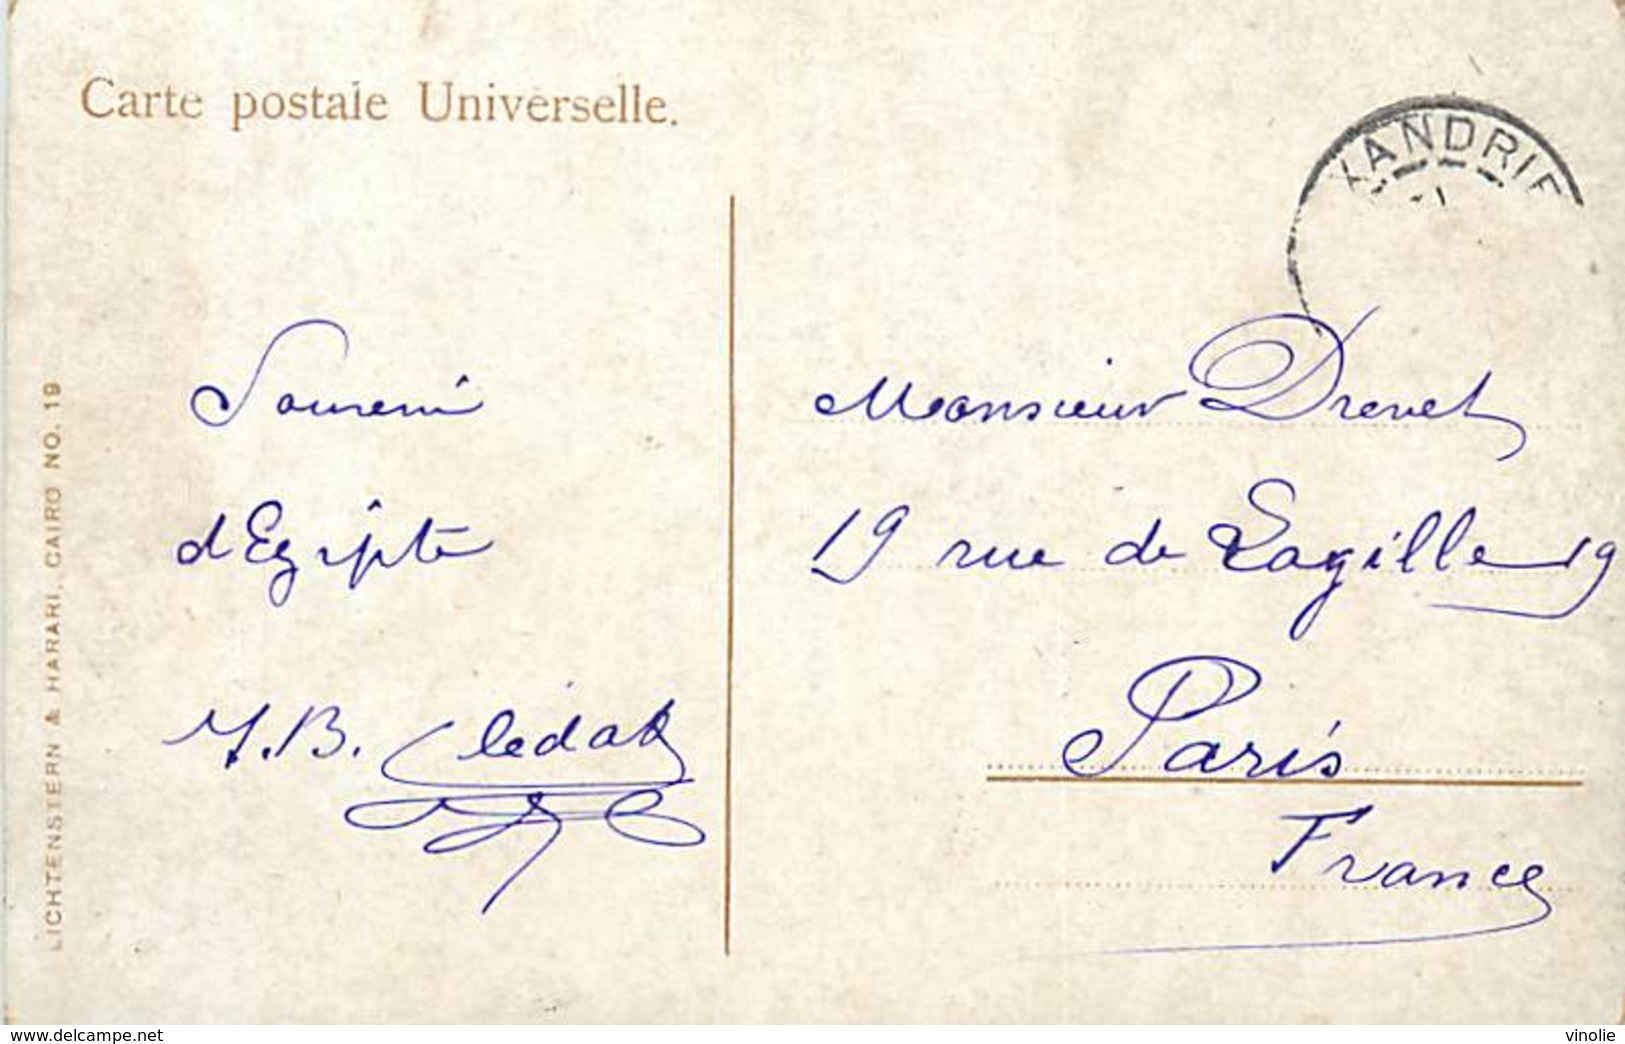 Carte postale Universelle.
XANDRIE
Souveni
d'Egipte
J.B. Clédat
Monsieur Drevet
19 rue de Lagille 19
Paris
France
LICHTENSTERN & HARARI, CAIRO NO. 19
www.delcampe.net
vinolie